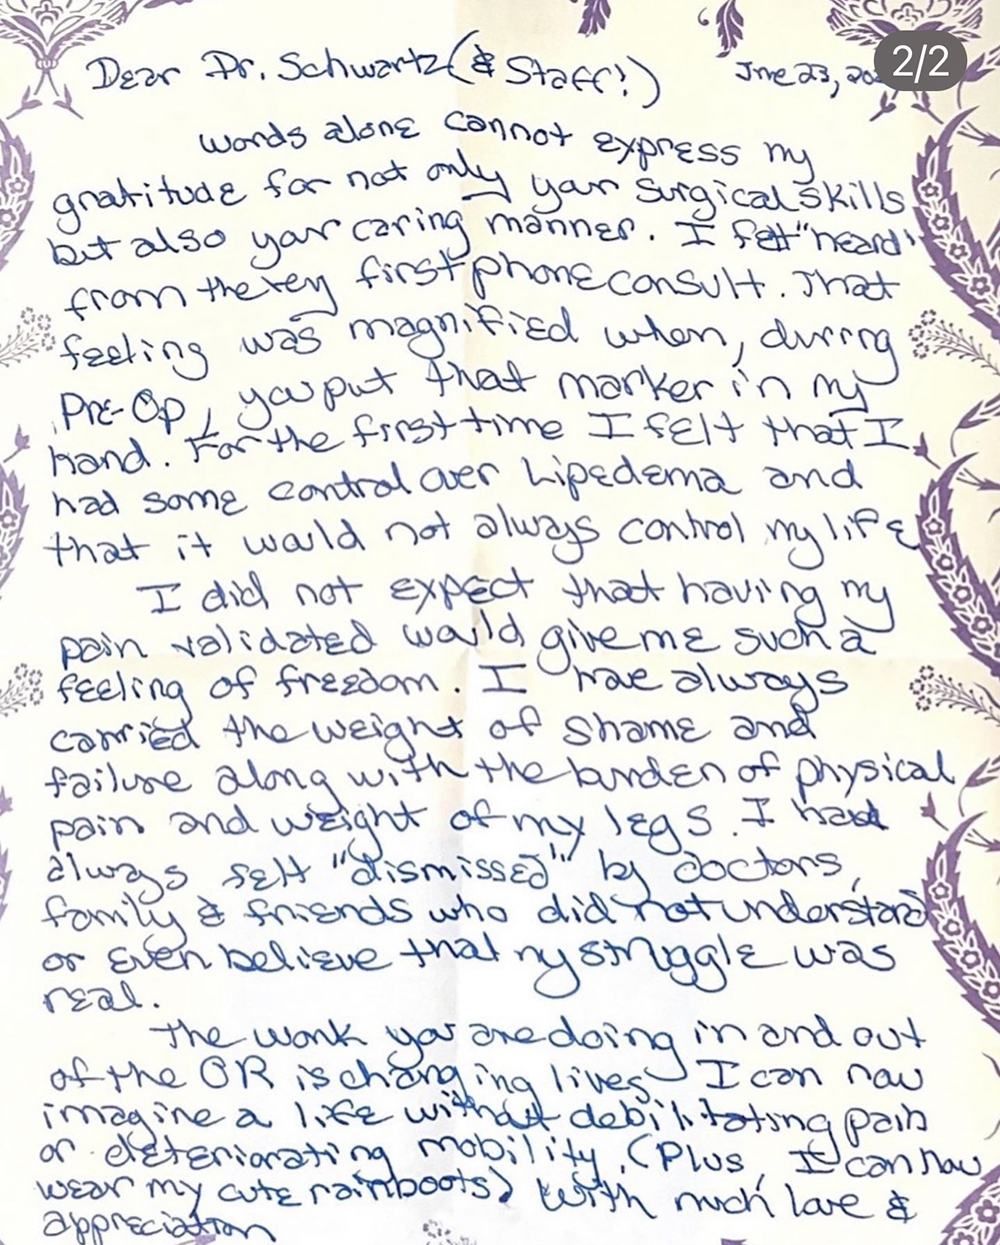 Dear Dr. Schwartz (& Staff!) June 23, 20
2/2
words alone cannot express my
gratitude for not only your surgical skills
but also your caring manner. I felt "heard"
from the very first phone consult. That
feeling was magnified when, during
Pre-Op, you put that marker in my
hand. For the first time I felt that I
had some control over Lipedema and
that it would not always control my life
I did not expect that having my
pain validated would give me such a
feeling of freedom. I have always
carried the weight of shame and
failure along with the burden of physical
pain and weight of my legs. I had
always felt "dismissed" by doctors,
family & friends who did not understand
or even believe that my struggle was
real.
The work you are doing in and out
of the OR is changing lives. I can now
imagine a life without debilitating pain
or deteriorating mobility. (Plus, I can now
wear my cute rainboots) With much love &
appreciation